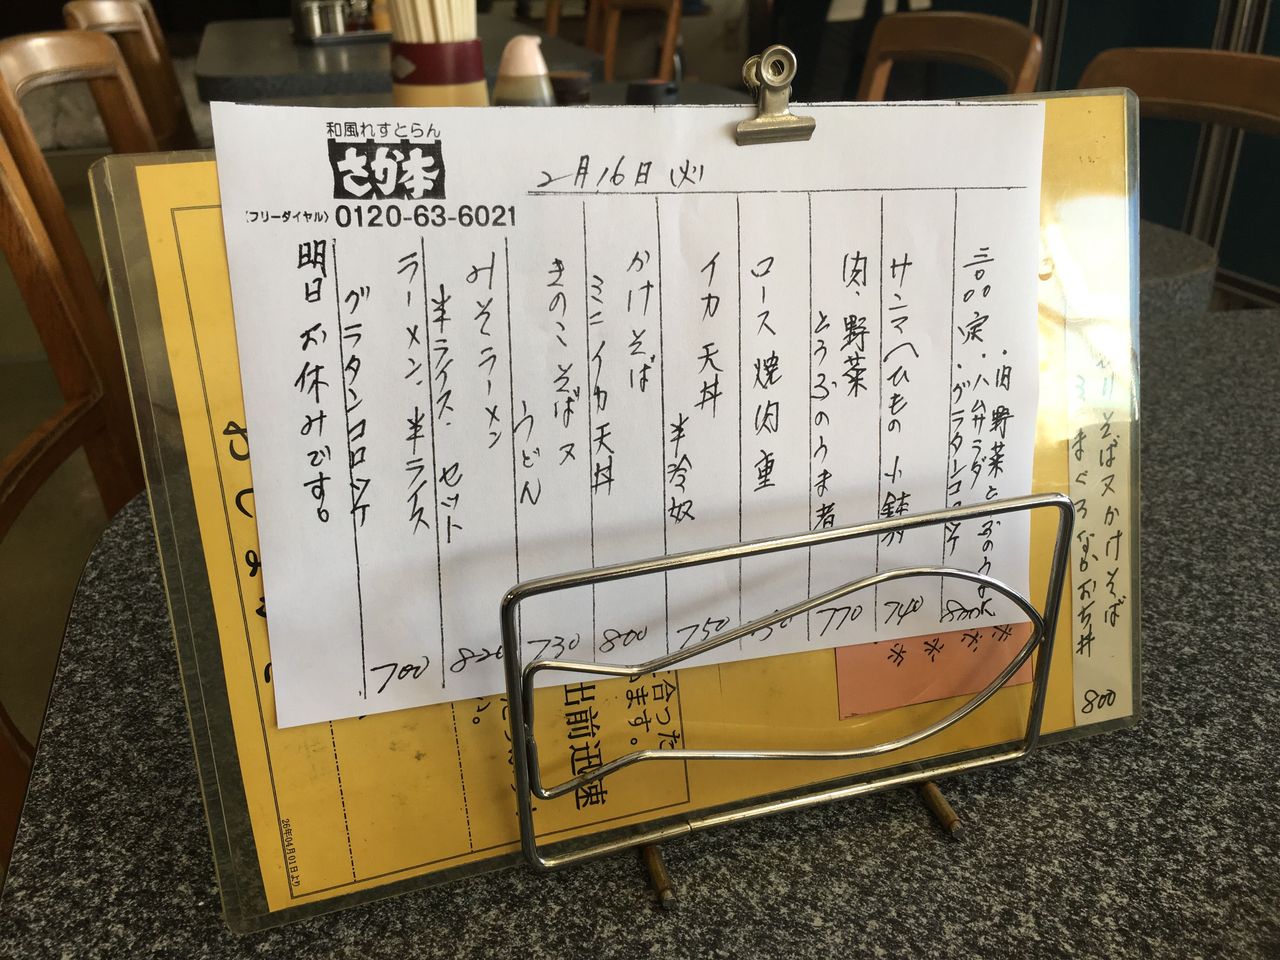 和風れすとらん
さか本
(フリーダイヤル) 0120-63-6021
2月16日(火)
三〇〇定・肉野菜とうふのうま煮
・ハムサラダ
・グラタンコロッケ
800
サンマ(ひもの 小鉢
740
肉・野菜
とうふのうま煮
770
ロース焼肉重
イカ天丼
半冷奴
750
かけそば
ミニイカ天丼
800
きのこそば又
うどん
730
みそラーメン
半ライス・セット
820
ラーメン・半ライス
グラタンコロッケ
700
明日お休みです。
そば又かけそば
ミニまぐろなかおち丼
800
合った
ます。
出前迅速
26年04月01日より